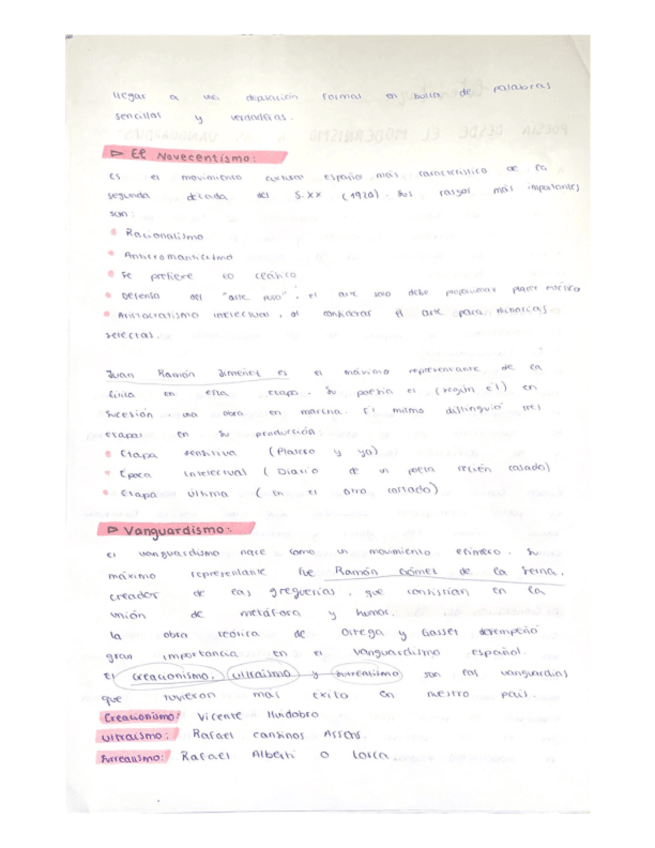 llegar a una depuración formal en busca de palabras
sencillas y verdaderas.
▷ El Novecentismo:
es el movimiento cultural español más característico de la
segunda década del S.XX (1920). Sus rasgos más importantes
son:
• Racionalismo
• Antirromanticismo
• Se prefiere lo clásico
• Defensa del "arte puro", el arte solo debe proporcionar placer estético
• Aristocratismo intelectual, al considerar el arte para minorías
selectas.
Juan Ramón Jiménez es el máximo representante de la
lírica en esta etapa. Su poesía es (según él) en
sucesión, una obra en marcha. Él mismo distinguió tres
etapas en su producción:
• Etapa sensitiva (Platero y yo)
• Época intelectual (Diario de un poeta recién casado)
• Etapa última (En el otro costado)
▷ Vanguardismo:
el vanguardismo nace como un movimiento efímero. Su
máximo representante fue Ramón Gómez de la Serna,
creador de las greguerías, que consistían en la
unión de metáfora y humor.
la obra teórica de Ortega y Gasset desempeñó
gran importancia en el vanguardismo español.
El creacionismo, ultraísmo y surrealismo son las vanguardias
que tuvieron más éxito en nuestro país.
Creacionismo: Vicente Huidobro
Ultraísmo: Rafael Cansinos Assens.
Surrealismo: Rafael Alberti o Lorca.